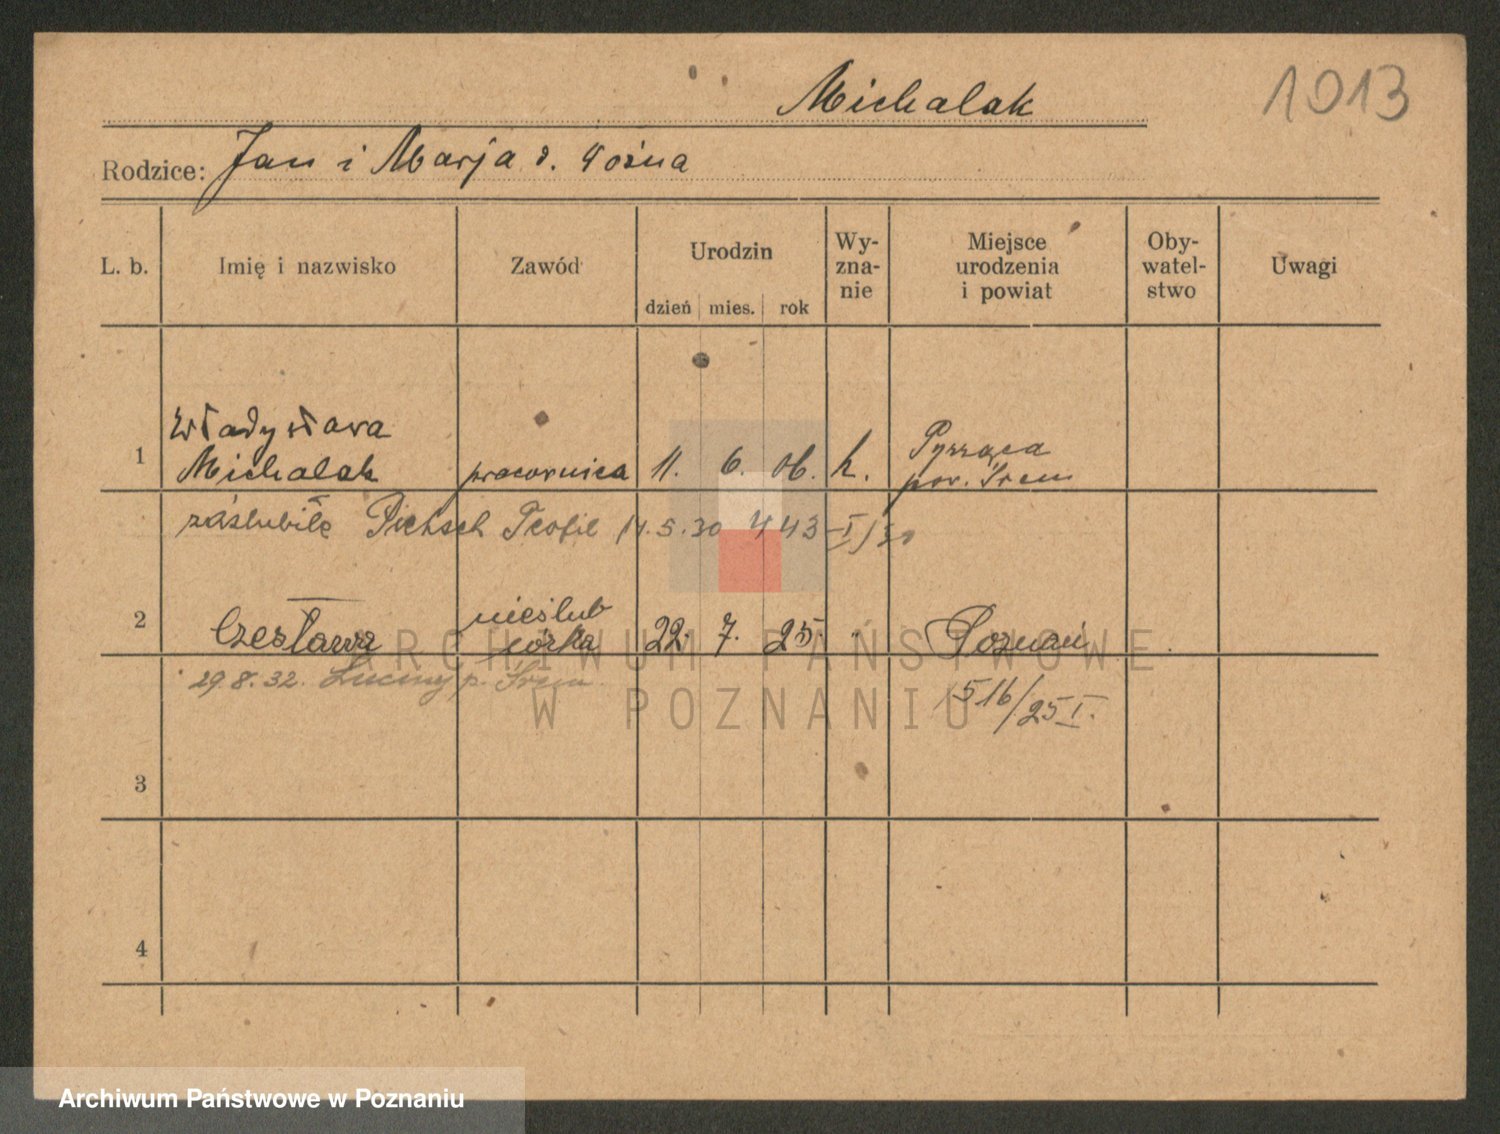 Michalak
1013
Rodzice: Jan i Marja d.
L. b.
Imię i nazwisko
Zawód
Urodzin
dzień mies. rok
Wy-
zna-
nie
Miejsce
urodzenia
i powiat
Oby-
watel-
stwo
Uwagi
Władysława
1 Michalak pracownica 11. 6. 06. k. Pysząca
pow. Śrem
zaślubiła Pietsch Teofil 14.5.30 443 I/30
2 Czesława nieślub
córka 22. 7. 25. " Poznań
29.8.32. Luciny p. Śrem
516/25 I.
3
4
ARCHIWUM PAŃSTWOWE
W POZNANIU
Archiwum Państwowe w Poznaniu